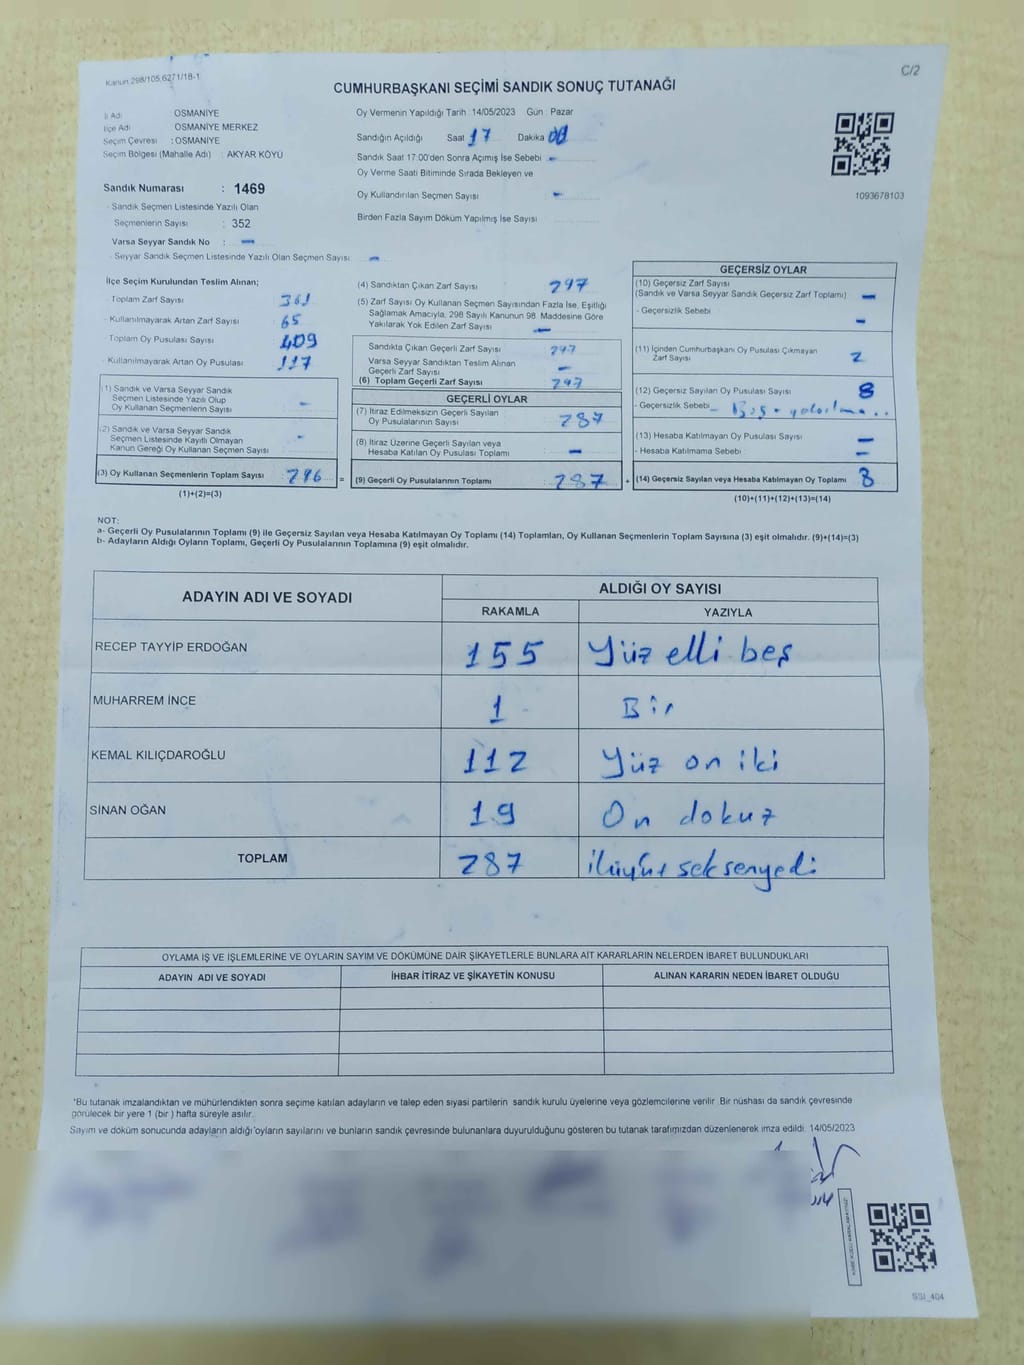 Kanun 298/105,6271/18-1
C/2
CUMHURBAŞKANI SEÇİMİ SANDIK SONUÇ TUTANAĞI
İl Adı OSMANİYE
İlçe Adı OSMANİYE MERKEZ
Seçim Çevresi : OSMANİYE
Seçim Bölgesi (Mahalle Adı) : AKYAR KÖYÜ
Sandık Numarası : 1469
- Sandık Seçmen Listesinde Yazılı Olan
Seçmenlerin Sayısı : 352
Varsa Seyyar Sandık No : -
- Seyyar Sandık Seçmen Listesinde Yazılı Olan Seçmen Sayısı -
Oy Vermenin Yapıldığı Tarih 14/05/2023 Gün Pazar
Sandığın Açıldığı Saat 17 Dakika 00
Sandık Saat 17:00'den Sonra Açımış İse Sebebi -
Oy Verme Saati Bitiminde Sırada Bekleyen ve
Oy Kullandırılan Seçmen Sayısı -
Birden Fazla Sayım Döküm Yapılmış İse Sayısı
1093678103
İlçe Seçim Kurulundan Teslim Alınan;
- Toplam Zarf Sayısı 361
- Kullanılmayarak Artan Zarf Sayısı 65
- Toplam Oy Pusulası Sayısı 409
- Kullanılmayarak Artan Oy Pusulası 117
(1) Sandık ve Varsa Seyyar Sandık
Seçmen Listesinde Yazılı Olup
Oy Kullanan Seçmenlerin Sayısı -
(2) Sandık ve Varsa Seyyar Sandık
Seçmen Listesinde Kayıtlı Olmayan
Kanun Gereği Oy Kullanan Seçmen Sayısı -
(3) Oy Kullanan Seçmenlerin Toplam Sayısı 296 =
(1)+(2)=(3)
(4) Sandıktan Çıkan Zarf Sayısı 297
(5) Zarf Sayısı Oy Kullanan Seçmen Sayısından Fazla İse, Eşitliği
Sağlamak Amacıyla, 298 Sayılı Kanunun 98. Maddesine Göre
Yakılarak Yok Edilen Zarf Sayısı -
Sandıkta Çıkan Geçerli Zarf Sayısı 297
Varsa Seyyar Sandıktan Teslim Alınan
Geçerli Zarf Sayısı -
(6) Toplam Geçerli Zarf Sayısı 297
GEÇERLİ OYLAR
(7) İtiraz Edilmeksizin Geçerli Sayılan
Oy Pusulalarının Sayısı 287
(8) İtiraz Üzerine Geçerli Sayılan veya
Hesaba Katılan Oy Pusulası Toplamı -
(9) Geçerli Oy Pusulalarının Toplamı 287 +
GEÇERSİZ OYLAR
(10) Geçersiz Zarf Sayısı
(Sandık ve Varsa Seyyar Sandık Geçersiz Zarf Toplamı) -
- Geçersizlik Sebebi -
(11) İçinden Cumhurbaşkanı Oy Pusulası Çıkmayan
Zarf Sayısı 2
(12) Geçersiz Sayılan Oy Pusulası Sayısı 8
- Geçersizlik Sebebi - Boş
(13) Hesaba Katılmayan Oy Pusulası Sayısı -
- Hesaba Katılmama Sebebi -
(14) Geçersiz Sayılan veya Hesaba Katılmayan Oy Toplamı 8
(10)+(11)+(12)+(13)=(14)
NOT:
a- Geçerli Oy Pusulalarının Toplamı (9) ile Geçersiz Sayılan veya Hesaba Katılmayan Oy Toplamı (14) Toplamları, Oy Kullanan Seçmenlerin Toplam Sayısına (3) eşit olmalıdır. (9)+(14)=(3)
b- Adayların Aldığı Oyların Toplamı, Geçerli Oy Pusulalarının Toplamına (9) eşit olmalıdır.
ADAYIN ADI VE SOYADI ALDIĞI OY SAYISI
RAKAMLA YAZIYLA
RECEP TAYYİP ERDOĞAN 155 Yüz elli beş
MUHARREM İNCE 1 Bir
KEMAL KILIÇDAROĞLU 112 Yüz on iki
SİNAN OĞAN 19 On dokuz
TOPLAM 287 seksenyedi
OYLAMA İŞ VE İŞLEMLERİNE VE OYLARIN SAYIM VE DÖKÜMÜNE DAİR ŞİKAYETLERLE BUNLARA AİT KARARLARIN NELERDEN İBARET BULUNDUKLARI
ADAYIN ADI VE SOYADI İHBAR İTİRAZ VE ŞİKAYETİN KONUSU ALINAN KARARIN NEDEN İBARET OLDUĞU
*Bu tutanak imzalandıktan ve mühürlendikten sonra seçime katılan adayların ve talep eden siyasi partilerin sandık kurulu üyelerine veya gözlemcilerine verilir. Bir nüshası da sandık çevresinde
görülecek bir yere 1 (bir) hafta süreyle asılır.
Sayım ve döküm sonucunda adayların aldığı oyların sayılarını ve bunların sandık çevresinde bulunanlara duyurulduğunu gösteren bu tutanak tarafımızdan düzenlenerek imza edildi. 14/05/2023
SSI_404